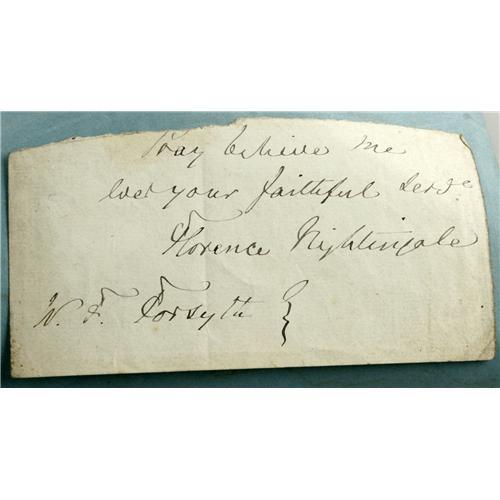 Pray believe me
ever your faithful serv<sup>t</sup>
Florence Nightingale
W. F. Forsyth